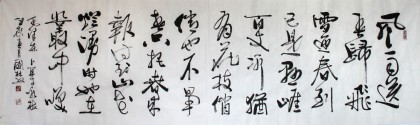 风雨送
春归飞
雪迎春到
已是悬崖
百丈冰犹
有花枝俏
俏也不争
春只把春来
报待到山花
烂漫时她在
丛中笑
毛泽东卜算子咏梅